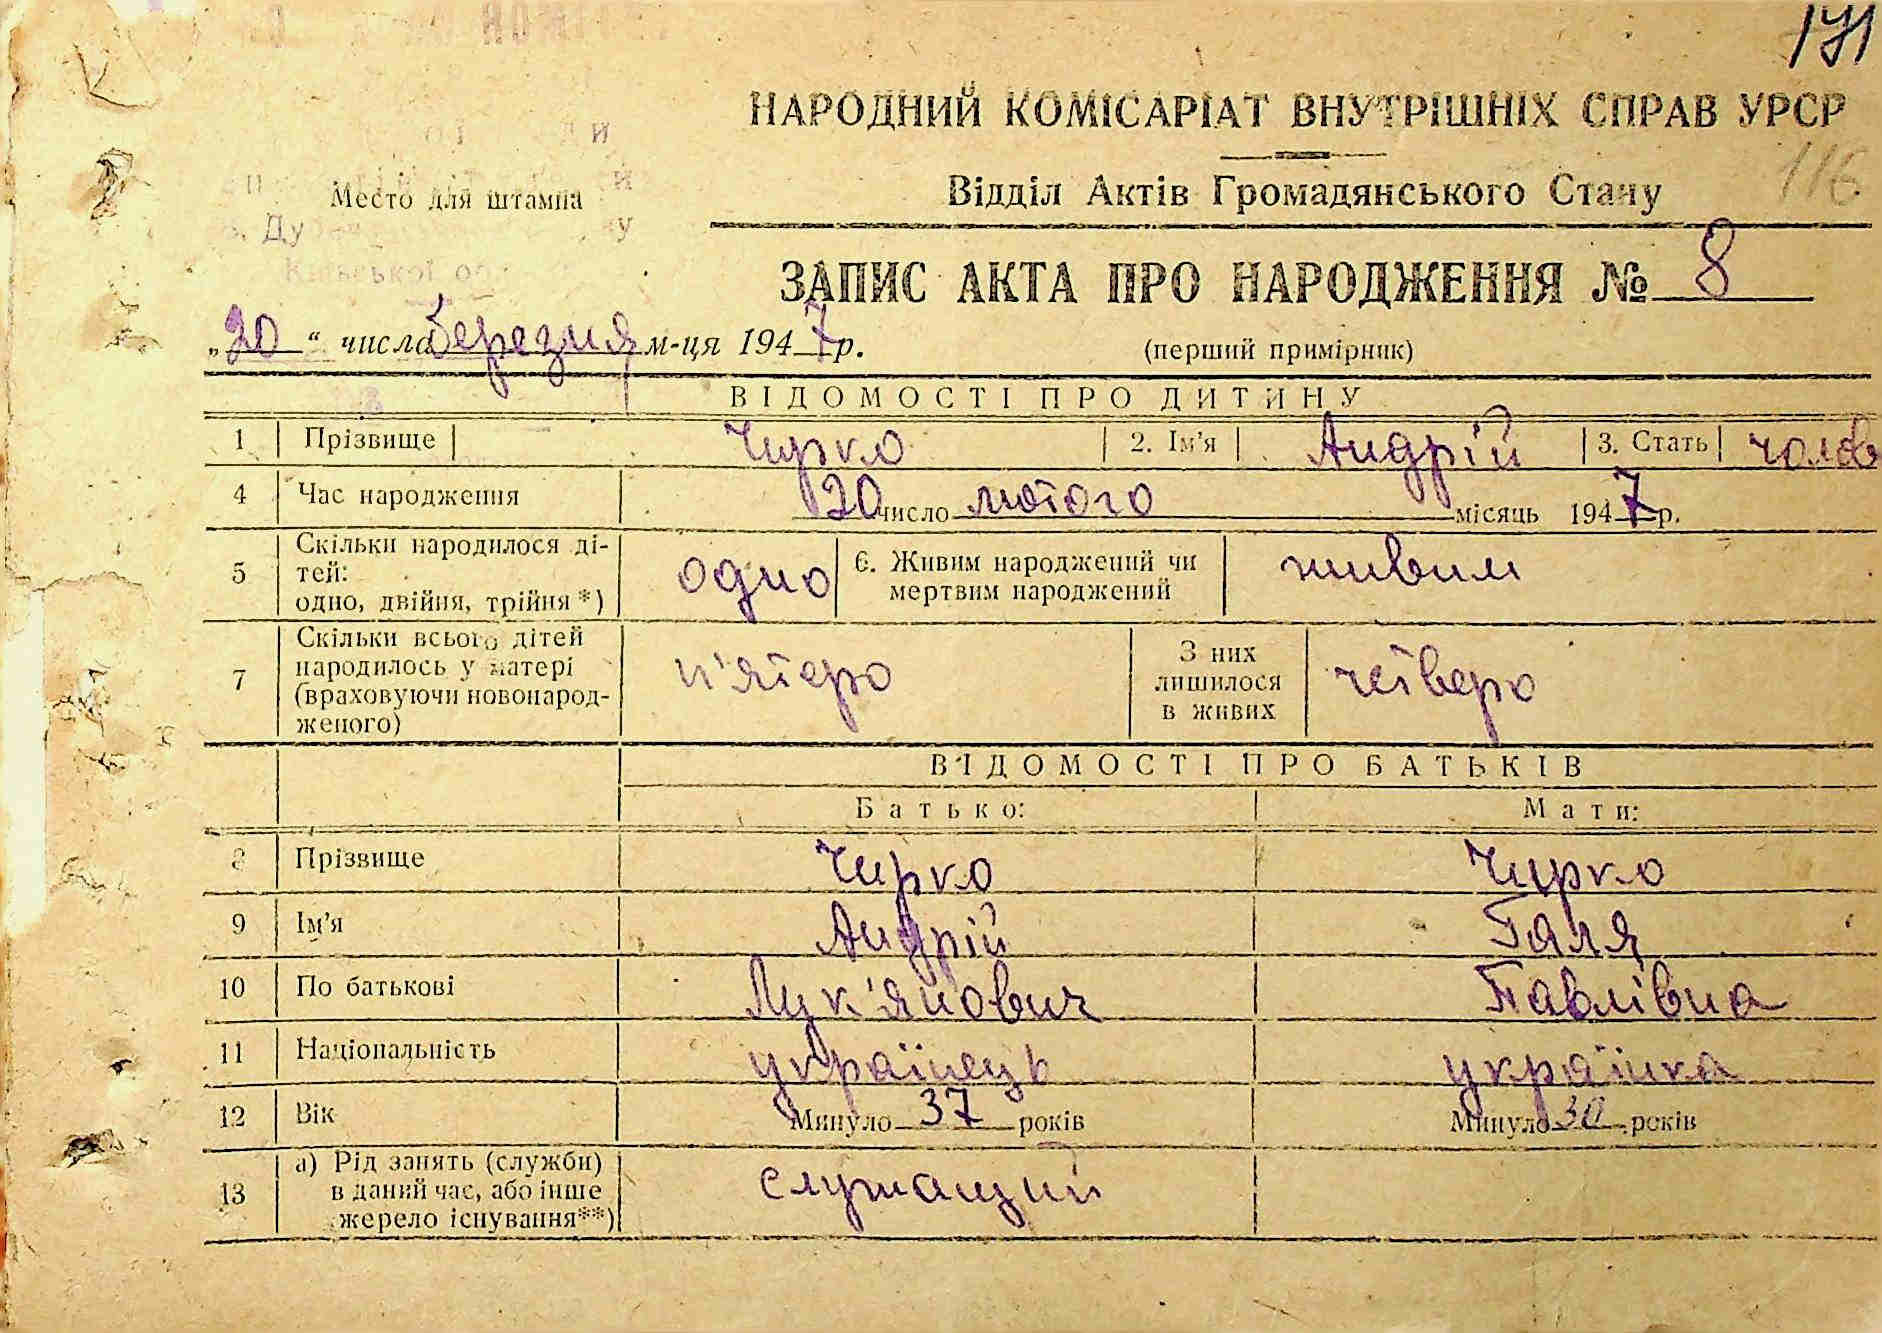 171
НАРОДНИЙ КОМІСАРІАТ ВНУТРІШНІХ СПРАВ УРСР
116
Место для штампа
Відділ Актів Громадянського Стану
Київської
ЗАПИС АКТА ПРО НАРОДЖЕННЯ № 8
„20“ числа березня м-ця 1947 р.
(перший примірник)
ВІДОМОСТІ ПРО ДИТИНУ
1 Прізвище Чирко 2. Ім'я Андрій 3. Стать чолов
4 Час народження 20 число лютого місяць 1947 р.
5 Скільки народилося ді-
тей:
одно, двійня, трійня *) одно 6. Живим народжений чи
мертвим народжений живим
7 Скільки всього дітей
народилось у матері
(враховуючи новонарод-
женого) п'ятеро З них
лишилося
в живих четверо
ВІДОМОСТІ ПРО БАТЬКІВ
Батько: Мати:
8 Прізвище Чирко Чирко
9 Ім'я Андрій Галя
10 По батькові Лук'янович Павлівна
11 Національність українець українка
12 Вік Минуло 37 років Минуло 30 років
13 а) Рід занять (служби)
в даний час, або інше
жерело існування**) служащий